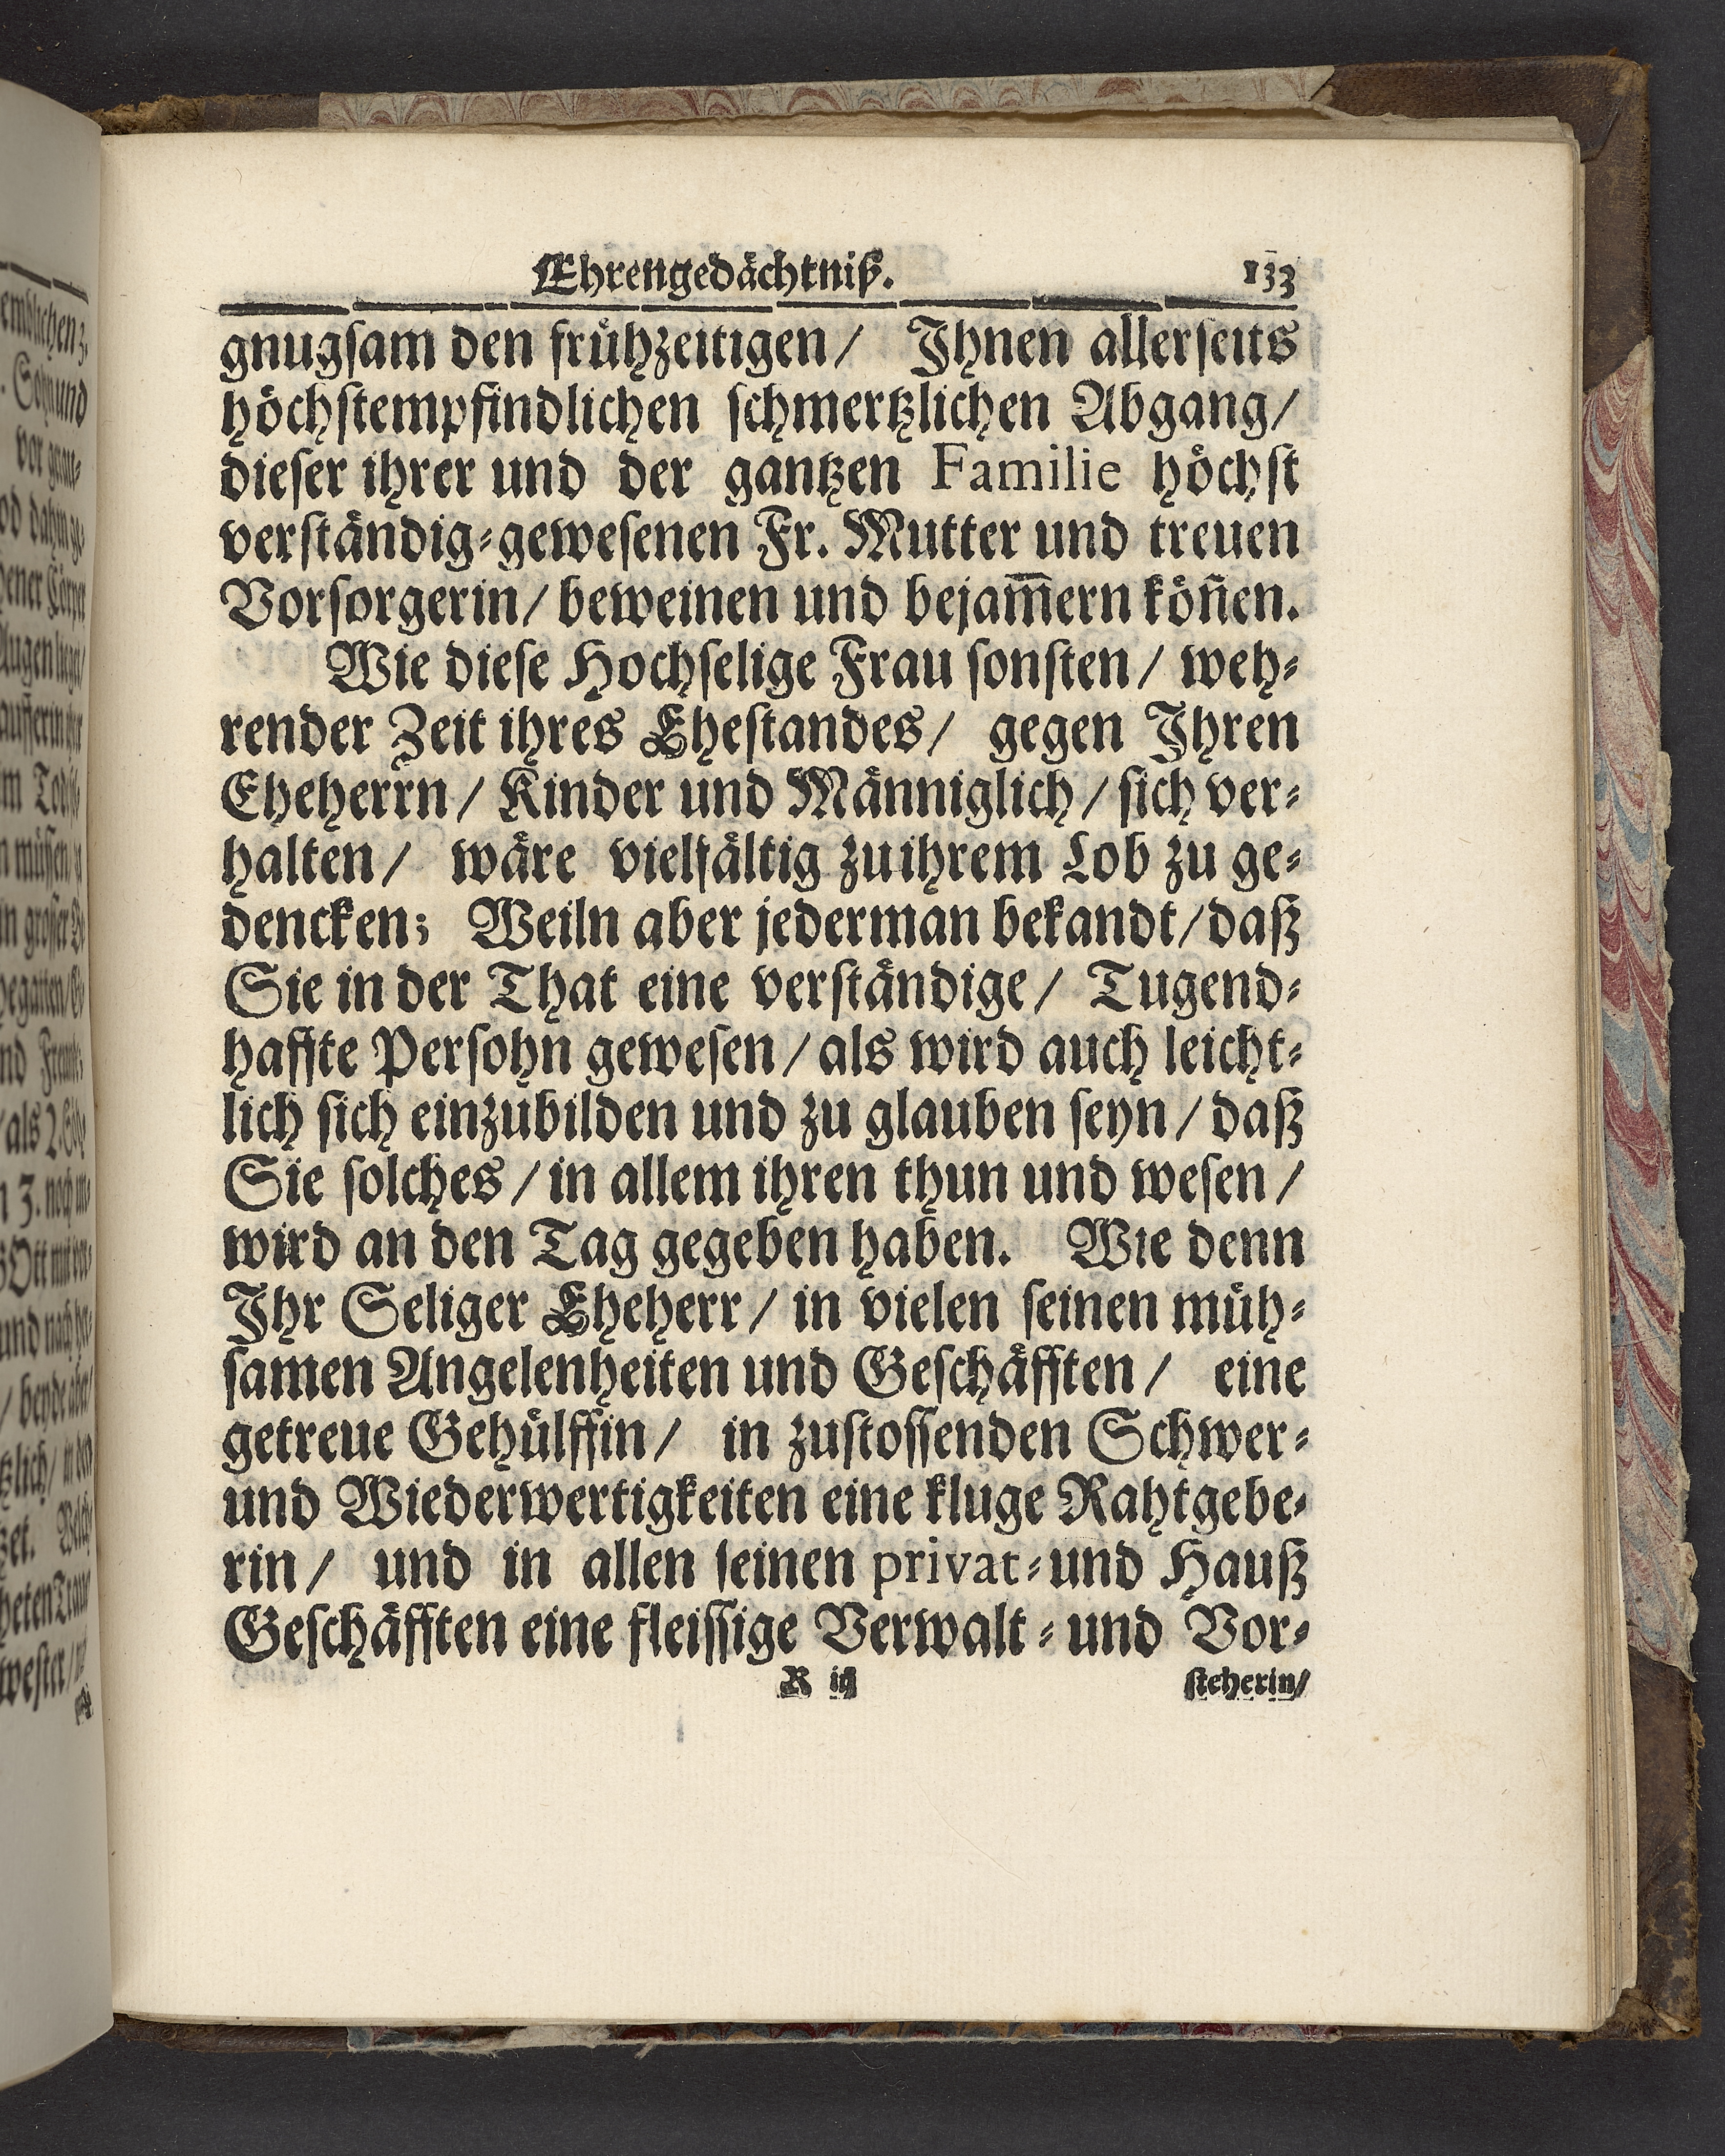 Ehrengedächtniß. 133
gnugſam den frühzeitigen / Ihnen allerſeits
höchſtempfindlichen ſchmertzlichen Abgang /
dieſer ihrer und der gantzen Familie höchſt
verſtändig⸗geweſenen Fr. Mutter und treuen
Vorſorgerin / beweinen und bejam̃ern köñen.
Wie dieſe Hochſelige Frau ſonſten / weh⸗
render Zeit ihres Eheſtandes / gegen Ihren
Eheherrn / Kinder und Männiglich / ſich ver⸗
halten / wäre vielfältig zu ihrem Lob zu ge⸗
dencken; Weiln aber jederman bekandt / daß
Sie in der That eine verſtändige / Tugend⸗
haffte Perſohn geweſen / als wird auch leicht⸗
lich ſich einzubilden und zu glauben ſeyn / daß
Sie ſolches / in allem ihren thun und weſen /
wird an den Tag gegeben haben. Wie denn
Ihr Seliger Eheherr / in vielen ſeinen müh⸗
ſamen Angelenheiten und Geſchäfften / eine
getreue Gehülffin / in zuſtoſſenden Schwer⸗
und Wiederwertigkeiten eine kluge Rahtgebe⸗
rin / und in allen ſeinen privat⸗und Hauß
Geſchäfften eine fleiſſige Verwalt⸗und Vor⸗
R iij ſteherin /